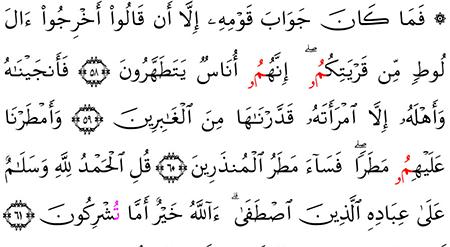 ۞ فَمَا كَانَ جَوَابَ قَوْمِهِۦ إِلَّا أَن قَالُوا۟ أَخْرِجُوا۟ ءَالَ
لُوطٍ مِّن قَرْيَتِكُمُۥٓ ۖ إِنَّهُمُۥٓ أُنَاسٌ يَتَطَهَّرُونَ ۝٥٨ فَأَنجَيْنَٰهُ
وَأَهْلَهُۥ إِلَّا ٱمْرَأَتَهُۥ قَدَّرْنَٰهَا مِنَ ٱلْغَٰبِرِينَ ۝٥٩ وَأَمْطَرْنَا
عَلَيْهِمُۥ مَطَرًا ۖ فَسَآءَ مَطَرُ ٱلْمُنذَرِينَ ۝٦٠ قُلِ ٱلْحَمْدُ لِلَّهِ وَسَلَٰمٌ
عَلَىٰ عِبَادِهِ ٱلَّذِينَ ٱصْطَفَىٰٓ ۗ ءَآللَّهُ خَيْرٌ أَمَّا تُشْرِكُونَ ۝٦١